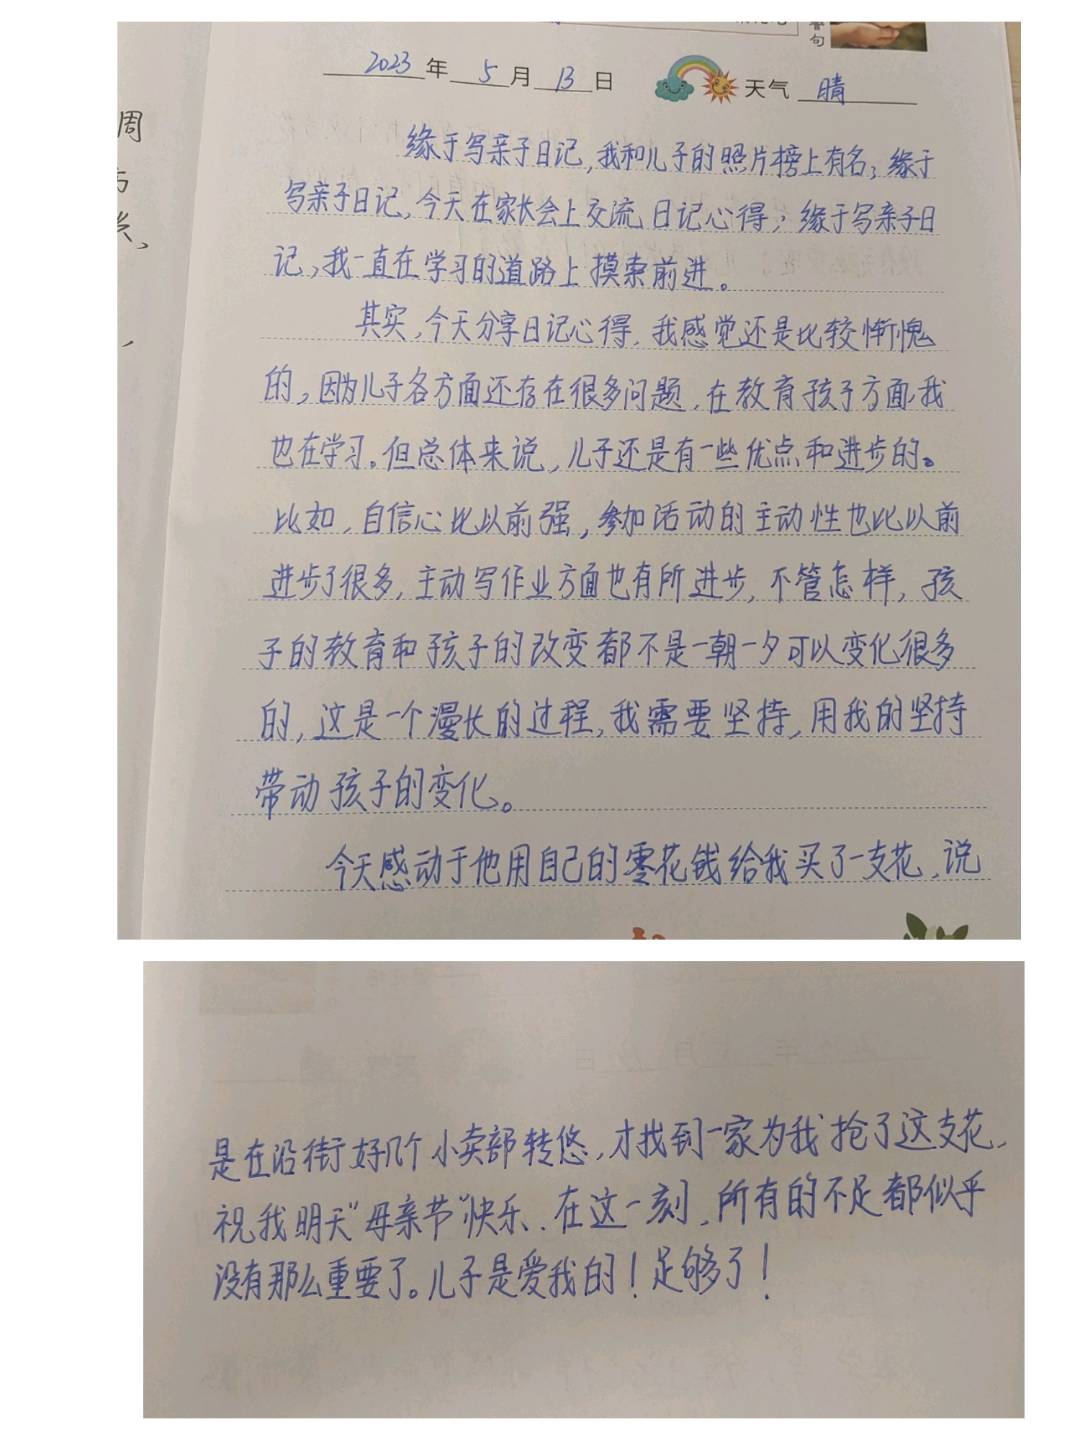 周
句
2023年5月13日 天气 晴
缘于写亲子日记，我和儿子的照片榜上有名；缘于
写亲子日记，今天在家长会上交流日记心得；缘于写亲子日
记，我一直在学习的道路上摸索前进。
其实，今天分享日记心得，我感觉还是比较惭愧
的，因为儿子各方面还存在很多问题，在教育孩子方面，我
也在学习。但总体来说，儿子还是有一些优点和进步的。
比如，自信心比以前强，参加活动的主动性也比以前
进步了很多，主动写作业方面也有所进步，不管怎样，孩
子的教育和孩子的改变都不是一朝一夕可以变化很多
的，这是一个漫长的过程，我需要坚持，用我的坚持
带动孩子的变化。
今天感动于他用自己的零花钱给我买了一支花，说
是在沿街好几个小卖部转悠，才找到一家为我抢了这支花，
祝我明天"母亲节"快乐、在这一刻，所有的不足都似乎
没有那么重要了。儿子是爱我的！足够了！